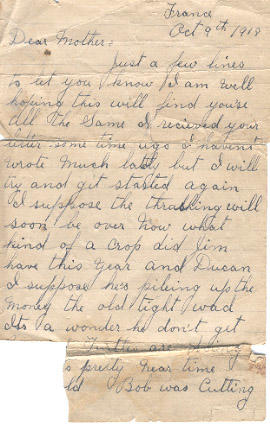 France
Oct 9th 1918
Dear Mother:
Just a few lines
to let you know I am well
hoping this will find you're
all the same I recieved your
letter some time ago I havent
wrote much lately but I will
try and get started again
I suphose the thrashing will
soon be over now what
kind of a crop did Jim
have this year and Ducan
I suppose he's pileing up the
money the old tight wad
Its a wonder he don't get
are
pretty near time
Bob was Cutting